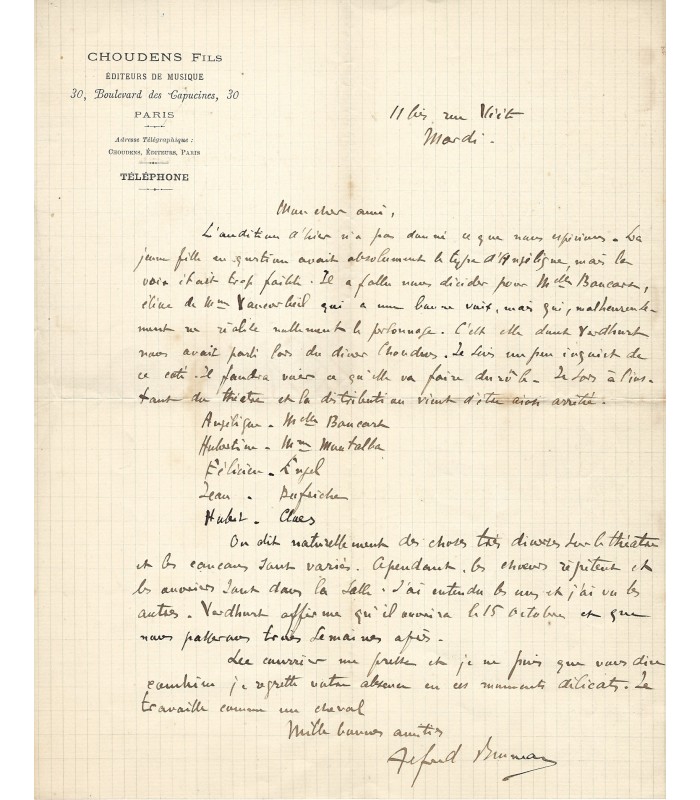 CHOUDENS FILS
ÉDITEURS DE MUSIQUE
30, Boulevard des Capucines, 30
PARIS
Adresse Télégraphique :
CHOUDENS, ÉDITEURS, PARIS
TÉLÉPHONE
11 bis rue Viète
Mardi.
Mon cher ami,
L'audition d'hier n'a pas donné ce que nous espérions. La
jeune fille en question avait absolument le type d'Angélique, mais la
voix était trop faible. Il a fallu nous décider pour Melle Bancart,
élève de Mme qui a une bonne voix, mais qui, malheureuse-
ment ne réalise nullement le personnage. C'est elle dont Verdhurt
nous avait parlé lors du diner Choudens. Je suis un peu inquiet de
ce coté. Il faudra voir ce qu'elle va faire du rôle. Je sors à l'ins-
tant du théâtre et la distribution vient d'être ainsi arrêtée.
Angélique - Melle Bancart
Hubertine - Mme Montalba
Félicien - Engel
Jean - Dufriche
Hubert - Claes
On dit naturellement des choses très diverses sur le théâtre
et les cancans sont variés. Cependant, les choeurs répètent et
les ouvriers sont dans la salle. J'ai entendu les uns et j'ai vu les
autres. Verdhurt affirme qu'il ouvrira le 15 octobre et que
nous passerons trois semaines après.
Le courrier me presse et je ne puis que vous dire
combien je regrette votre absence en ces moments délicats. Je
travaille comme un cheval
Mille bonnes amitiés
Alfred Bruneau